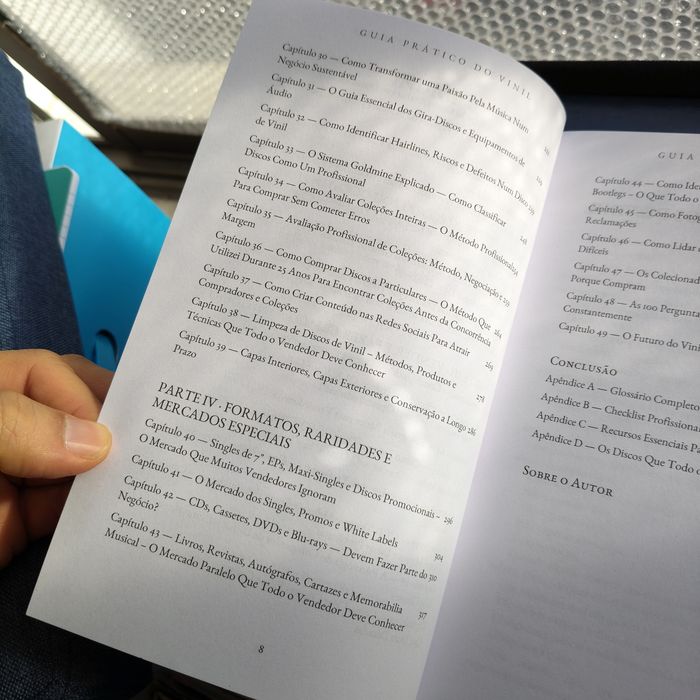 GUIA PRÁTICO DO VINIL
Capítulo 30 — Como Transformar uma Paixão Pela Música Num
Negócio Sustentável
Capítulo 31 — O Guia Essencial dos Gira-Discos e Equipamentos de
Áudio
Capítulo 32 — Como Identificar Hairlines, Riscos e Defeitos Num Disco
de Vinil
Capítulo 33 — O Sistema Goldmine Explicado — Como Classificar
Discos Como Um Profissional
Capítulo 34 — Como Avaliar Coleções Inteiras — O Método Profissional
Para Comprar Sem Cometer Erros
Capítulo 35 — Avaliação Profissional de Coleções: Método, Negociação e
Margem
Capítulo 36 — Como Comprar Discos a Particulares — O Método Que 264
Utilizei Durante 25 Anos Para Encontrar Coleções Antes da Concorrência
Capítulo 37 — Como Criar Conteúdo nas Redes Sociais Para Atrair
Compradores e Coleções 269
Capítulo 38 — Limpeza de Discos de Vinil – Métodos, Produtos e
Técnicas Que Todo o Vendedor Deve Conhecer 278
Capítulo 39 — Capas Interiores, Capas Exteriores e Conservação a Longo 286
Prazo
PARTE IV · FORMATOS, RARIDADES E
MERCADOS ESPECIAIS
Capítulo 40 — Singles de 7", EPs, Maxi-Singles e Discos Promocionais – 296
O Mercado Que Muitos Vendedores Ignoram
Capítulo 41 — O Mercado dos Singles, Promos e White Labels 304
Capítulo 42 — CDs, Cassetes, DVDs e Blu-rays — Devem Fazer Parte do 310
Negócio?
Capítulo 43 — Livros, Revistas, Autógrafos, Cartazes e Memorabilia 317
Musical – O Mercado Paralelo Que Todo o Vendedor Deve Conhecer
8
GUIA
Capítulo 44 — Como Ide
Bootlegs – O Que Todo o
Capítulo 45 — Como Fotog
Reclamações
Capítulo 46 — Como Lidar
Difíceis
Capítulo 47 — Os Colecionad
Porque Compram
Capítulo 48 — As 100 Pergunta
Constantemente
Capítulo 49 — O Futuro do Vini
CONCLUSÃO
Apêndice A — Glossário Completo
Apêndice B — Checklist Profissional
Apêndice C — Recursos Essenciais Pa
Apêndice D — Os Discos Que Todo o
SOBRE O AUTOR